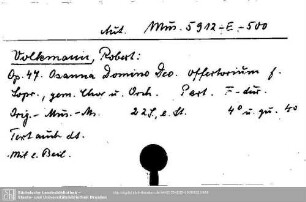 Aut. Mus. 5912-E-500
Volkmann, Robert:
Op. 47. Osanna Domino Deo. Offertorium f.
Sopr., gem. Chor u. Orch. Part. F-dur.
Orig.-Mus.-Ms. 22 S., e. St. 4° u. qu. 4°
Text auch dt.
Mit e. Beil.
Sächsische Landesbibliothek -
Staats- und Universitätsbibliothek Dresden